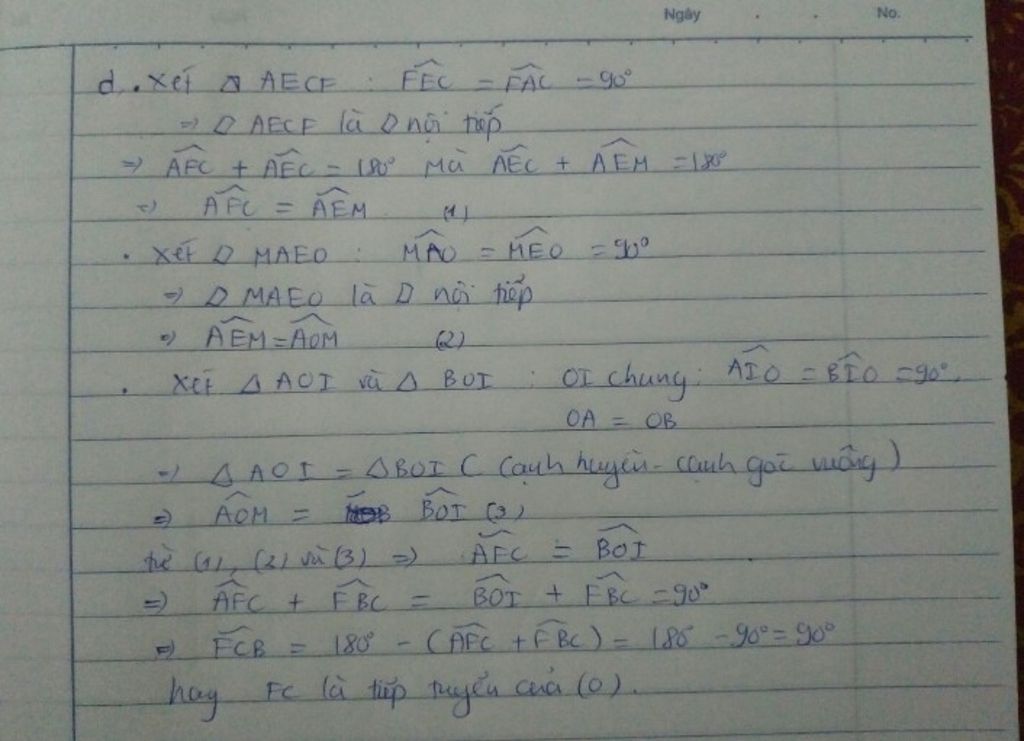 Ngày . . No.
d, . Xét ▱ AECF : FÊC = FÂC = 90°
=> ▱ AECF là ▱ nội tiếp
=> AFC + AEC = 180° Mà AEC + AEM = 180°
=> AFC = AEM (1)
. Xét ▱ MAEO : MAO = MEO = 90°
=> ▱ MAEO là ▱ nội tiếp
=> AEM = AOM (2)
. Xét △ AOI và △ BOI : OI chung: AIO = BIO = 90°.
OA = OB
=> △ AOI = △BOI ( cạnh huyền - cạnh góc vuông )
=> AOM = BOI (3)
từ (1), (2) và (3) => AFC = BOI
=> AFC + FBC = BOI + FBC = 90°
=> FCB = 180° - (AFC + FBC) = 180 - 90° = 90°
hay FC là tiếp tuyến của (O).